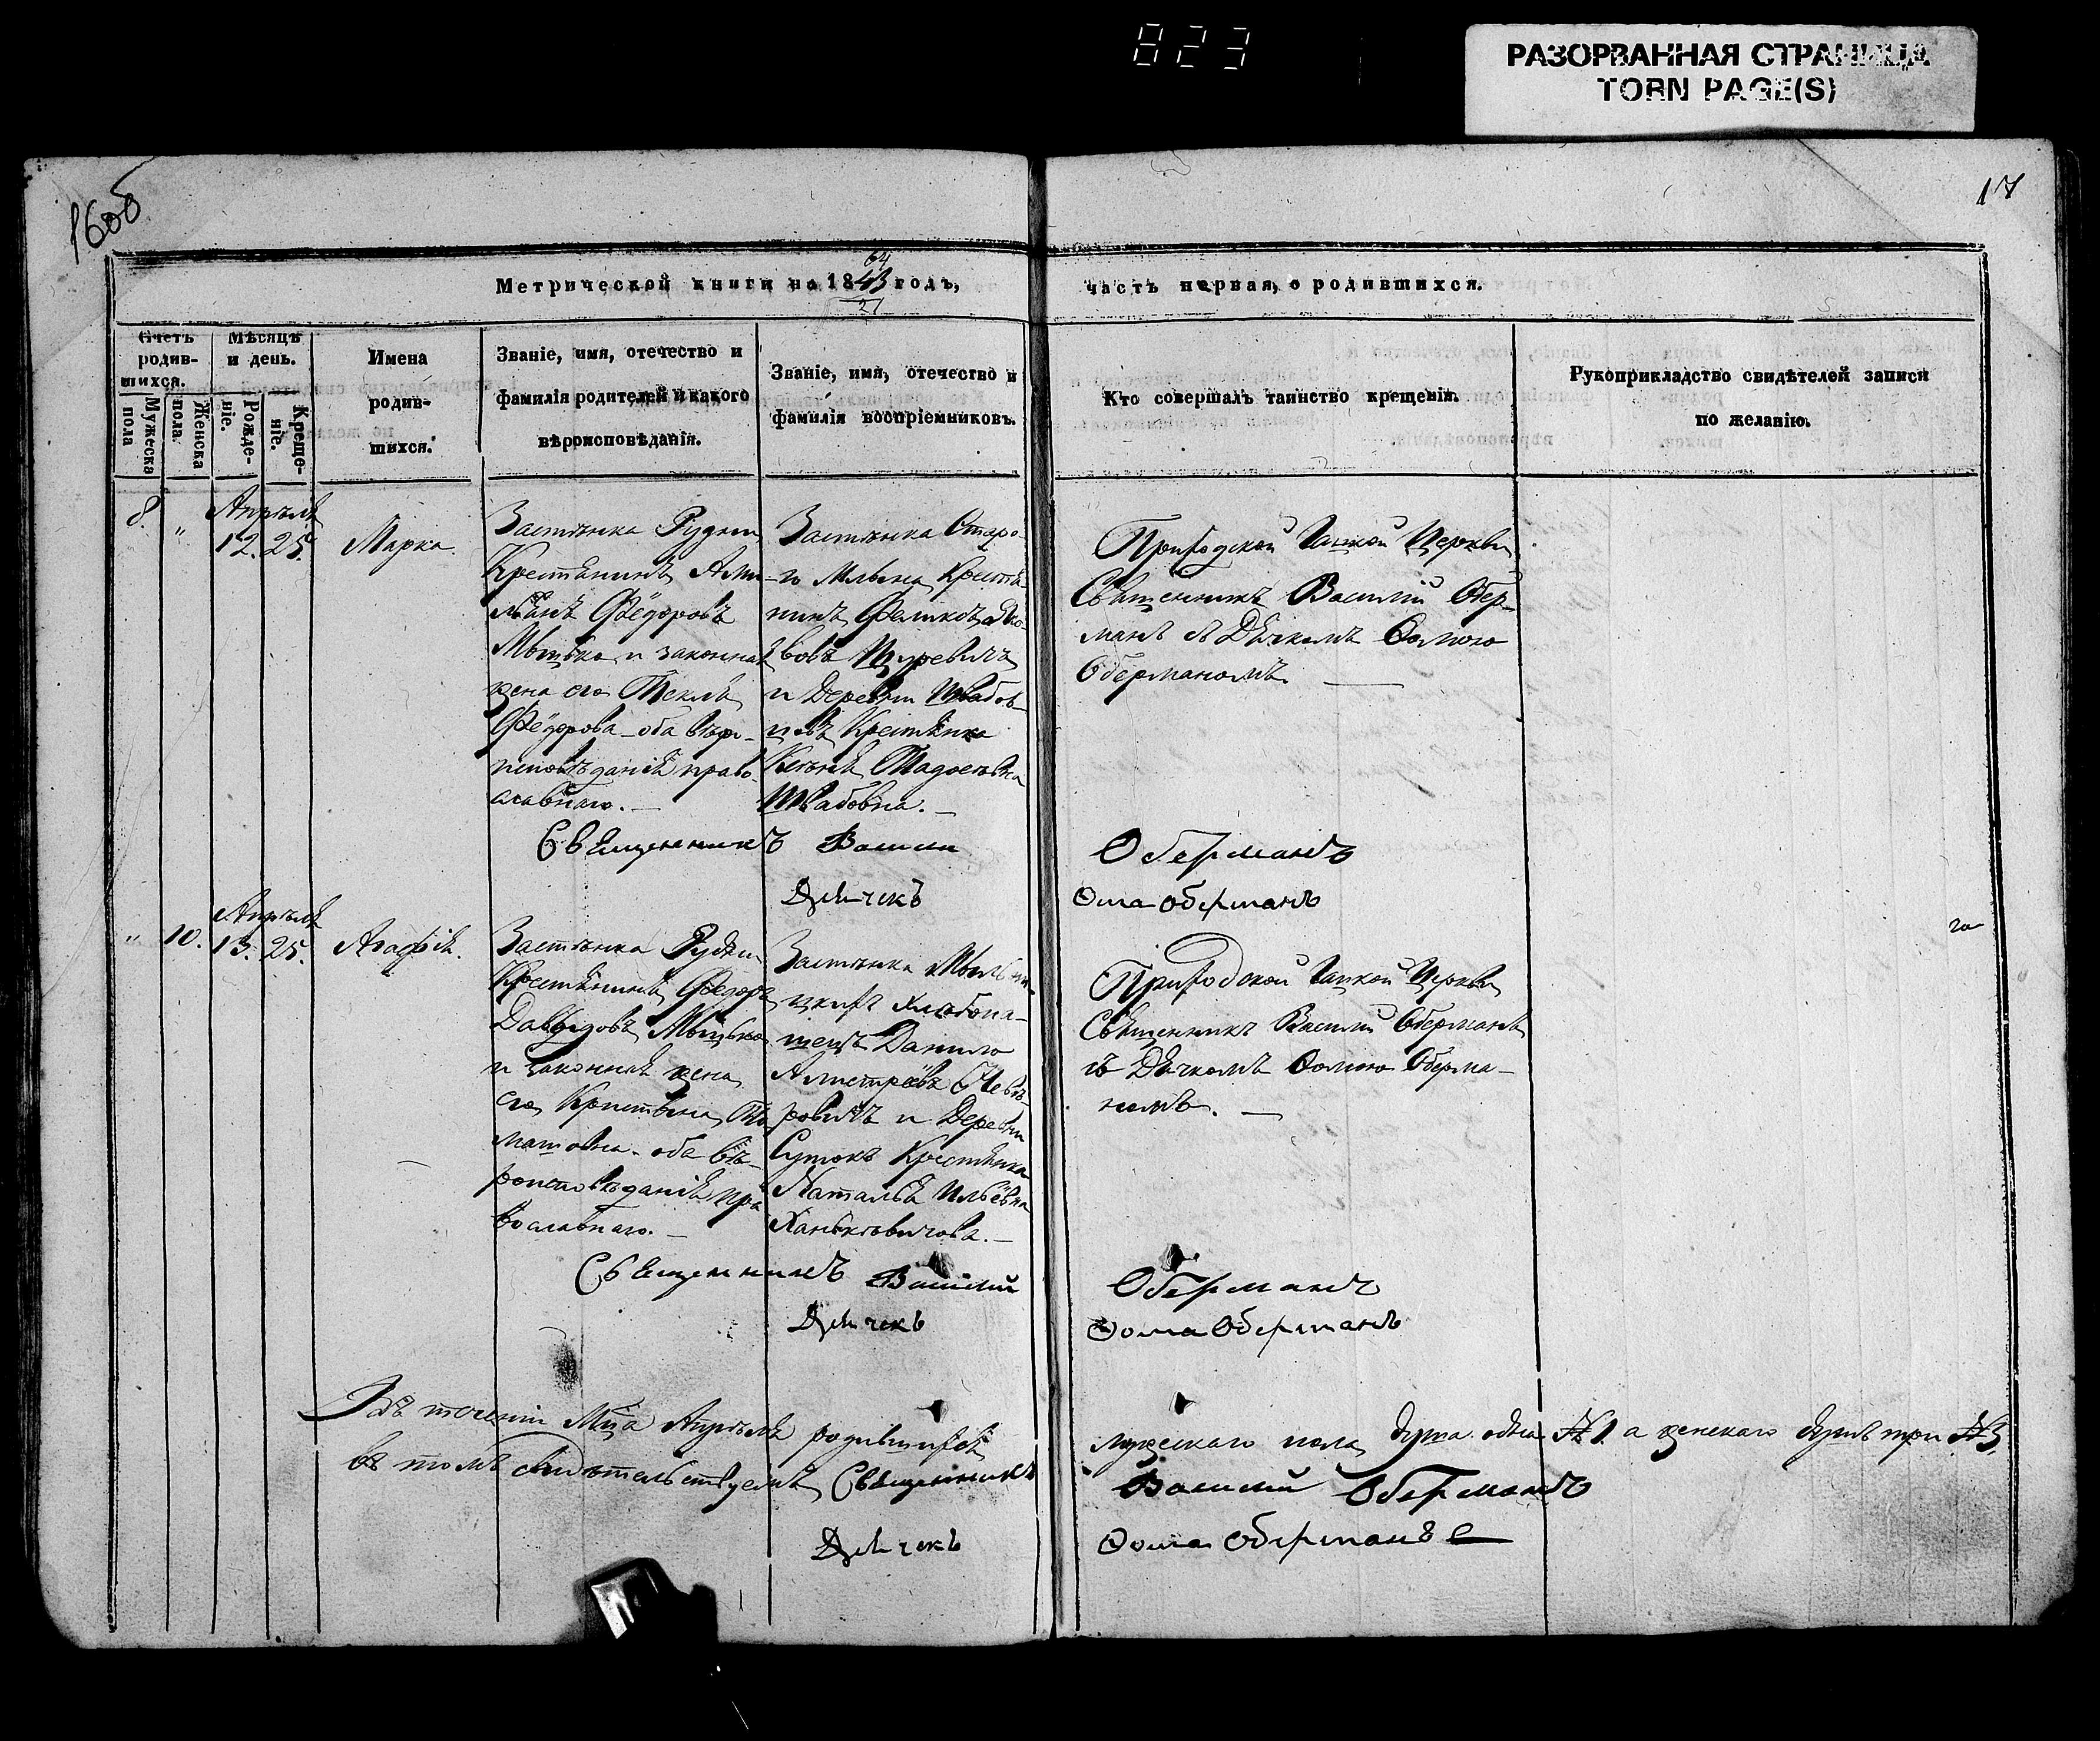 823
РАЗОРВАННАЯ СТРАНИЦА
TORN PAGE(S)
16об
17
Метрической книги на 1843 годъ,
64
21
часть первая, о родившихся.
Счетъ родив-шихся.
Мужеска пола
Женска пола.
Мѣсяцъ и день.
Рожде-ніе.
Креще-ніе.
Имена родив-шихся.
Званіе, имя, отечество и
фамилія родителей и какого
вѣроисповѣданія.
Званіе, имя, отечество и
фамилія воспріемниковъ.
Кто совершалъ таинство крещенія.
Рукоприкладство свидѣтелей записи
по желанію.
8. „ Апрѣля 12. 25. Марка.
Застѣнка Рудни
Крестьянинъ Ами-
льянъ Ѳёдоровъ
Мышка и законная
жена его Текля
Ѳёдорова оба вѣро-
исповѣданія право-
славнаго. —
Застѣнка Старо-
го Млына Крестья-
нинъ Феликсъ
Щуревичъ
и Деревни Швабов-
цевъ Крестьянка
Ксенія Тадоевна
Швабовна. —
Приходской Церкви
Священникъ Василій Обер-
манъ съ Дьячкомъ Ѳомою
Оберманомъ. —
Священникъ Василий Оберманъ
Дьячекъ Ѳома Оберманъ
„ 10. Апрѣля 13. 25. Агафія.
Застѣнка Рудни
Крестьянинъ Ѳедоръ
Давыдовъ Мышка
и законная жена
его Кристина То-
машовна оба вѣ-
роисповѣданія пра-
вославнаго. —
Застѣнка
хлѣбопа-
шецъ Данило
ровичъ и Деревни
Сутокъ Крестьянка
Наталья Ильёвна
Ханьковичова. —
Приходской Церкви
Священникъ Василій Оберманъ
съ Дьячкомъ Ѳомою Оберма-
номъ. —
Священникъ Василий Оберманъ
Дьячекъ Ѳома Оберманъ
Въ теченіи Мца Апрѣля родившихся мужескаго пола душа одна №1. а женскаго душъ три №3.
въ томъ свидѣтельствуемъ Священникъ Василий Оберманъ
Дьячекъ Ѳома Оберманъ